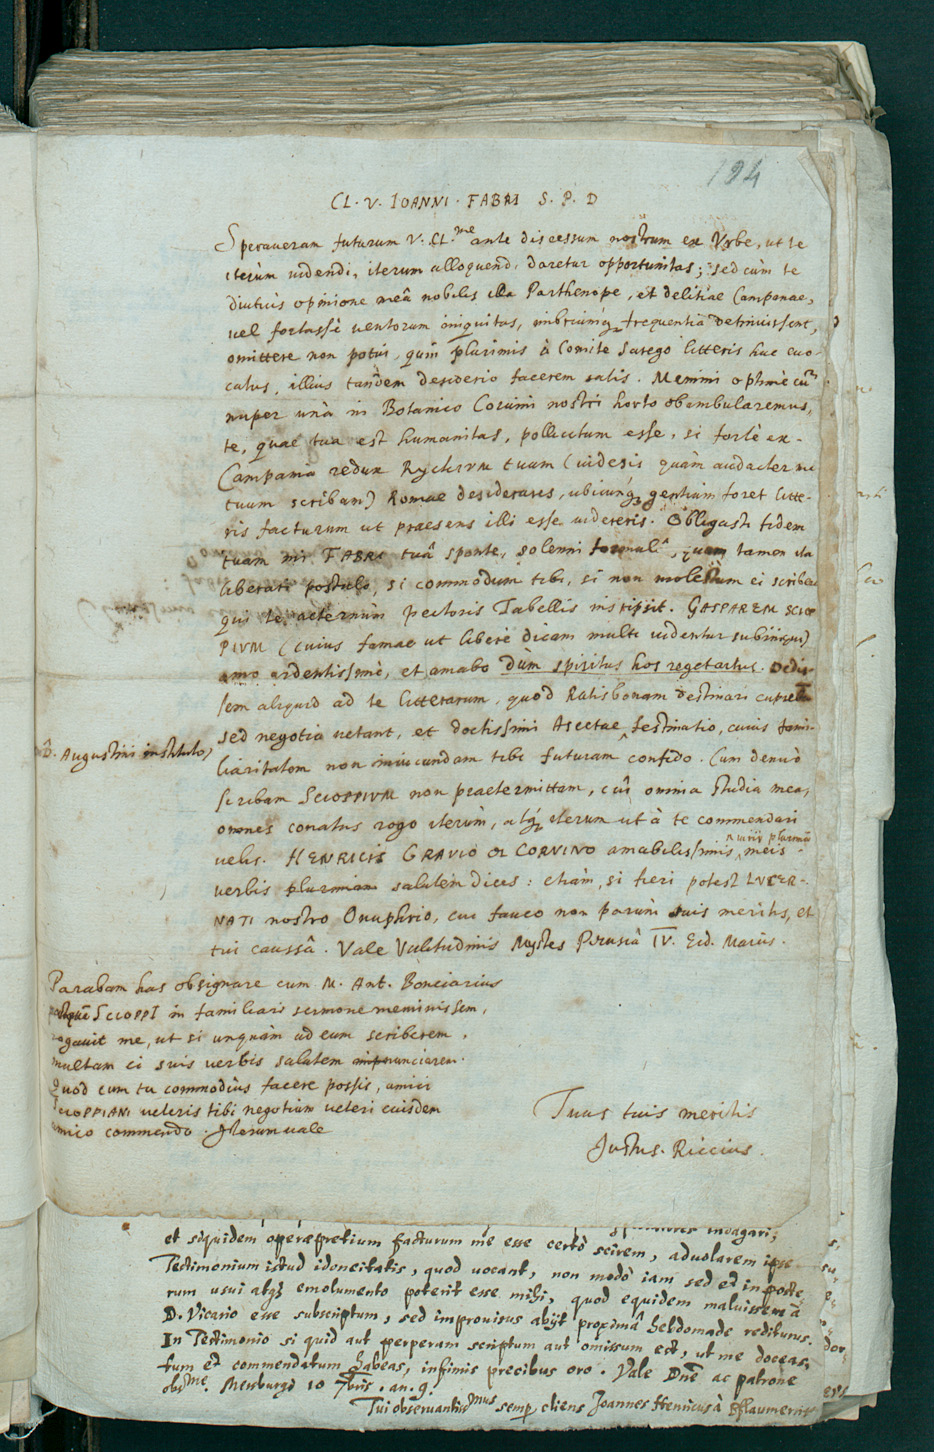 194
CL. V. IOANNI. FABRI S. P. D
Speraveram futurum V. CL.me ante discessum nostrum ex Urbe, ut te
iterùm uidendi, iterum alloquendi daretur opportunitas; sed cùm te
diutius opinione meâ nobilis illa Parthenope, et delitiae Campanae,
vel fortassè uentorum iniquitas, imbriumq; frequentia detinuissent,
omittere non potui, quin plurimis à Comite Sarego litteris huc euo-
catus, illius tandem desiderio facerem satis. Memini optimè cũ
nuper unà in Botanico Cosuini nostri horto obambularemus,
te, quae tua est humanitas, pollicitum esse, si fortè ex-
Campania redux Ryckium tuum (uidesis quàm audacter me
tuum scribam) Romae desiderares, ubicunq; gentium foret litte-
ris facturum ut praesens illi esse uidereris. Obligasti fidem
tuam mi FABRI tuâ sponte, solenni formulâ, quam tamen ita
liberari postulo, si commodum tibi, si non molestum ei scribere
qui te aeternùm pectoris Tabellis inscripsit. GASPAREM SCIOP
PIUM (cuius famae ut liberè dicam multi uidentur subiniqui)
amo ardentissimè, et amabo dùm spiritus hos reget artus. Dedis-
sem aliquid ad te litterarum, quod Ratisbonam destinari cuperem
sed negotia uetant, et doctissimi Ascetae festinatio, cuius fami-
D. Augustini instituto,
liaritatem non iniucundam tibi futuram confido. Cum denuò
scribam SCIOPPIUM non praetermittam, cui omnia studia mea,
omnes conatus rogo iterùm, atq; iterum ut à te commendari
velis. HENRICIS GRAVIO & CORVINO amabilissimis meis
verbis plurimam salutem dices: etiam, si fieri potest LUCER-
NATI nostro Onuphrio, cui faueo non parùm suis meritis, et
tui caussâ. Vale Valetudinis Mystes Perusiâ IV. Eid. Maias.
Parabam has obsignare cum M. Ant. Bonciarius
SCIOPPI in familiari sermone meminissem,
rogauit me, ut si unquàm ad eum scriberem,
multam ei suis uerbis salutem nunciarem.
Quod cum tu commodiùs facere possis, amici
SCIOPPIANI ueteris tibi negotium ueteri eiusdem
amico commendo. Iterum uale
Tuus tuis meritis
Justus. Riccius.
indagari;
et siquidem operæpretium facturum me esse certò scirem, aduolarem ipse
Testimonium istud idoneitatis, quod uocant, non modò iam sed et in poste
rum usui atq; emolumento poterit esse mihi, quod equidem maluissem à
D. Vicario esse subscriptum, sed improuisus abijt proximâ hebdomade rediturus.
In Testimonio si quid aut perperam scriptum aut omissum est, ut me doceas,
tum et commendatum habeas, infimis precibus oro. Vale Dnẽ ac patrone
obs.me. Merspurgi 10 7bris. an. 9.
Tui obseruantiss.mus semp cliens Joannes Henricus à Pflaumern